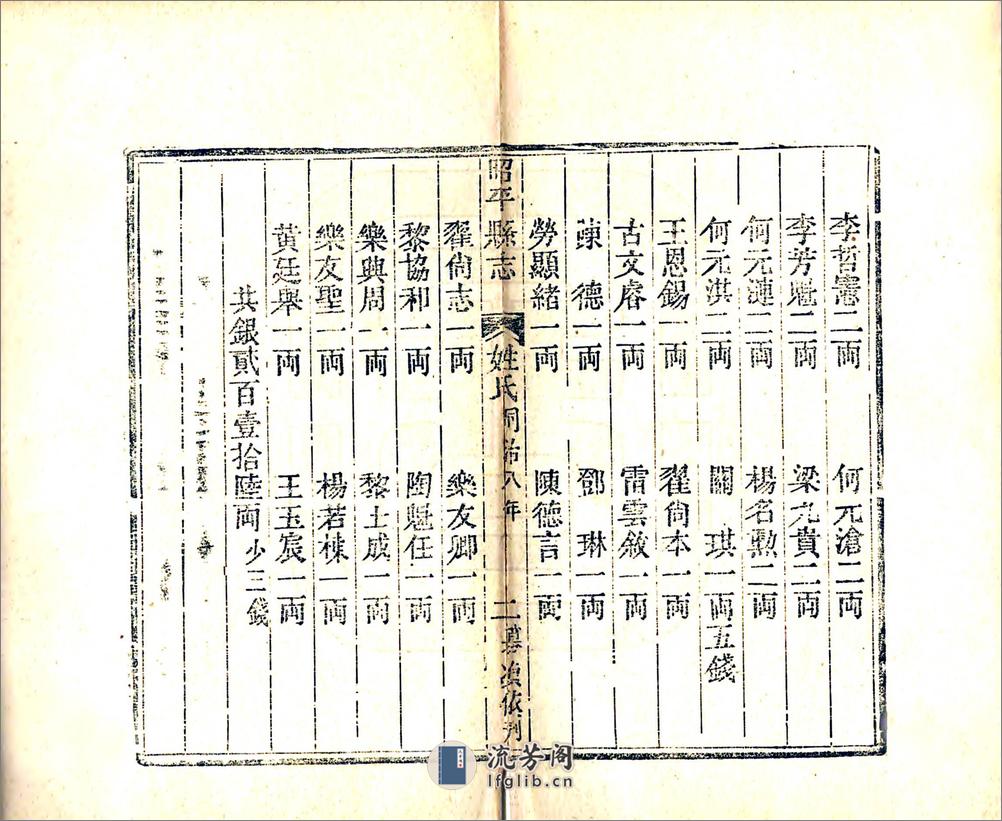 李哲憲二両　何元滄二両
李芳魁二両　梁九賁二両
何元漣二両　楊名勲二両
何元洪二両　關　琪一両五錢
王恩錫一両　翟尙本一両
古文睿一両　雷雲敘一両
陳　德一両　鄧　琳一両
勞顯緒一両　陳德言一両
昭平縣志　姓氏同治八年　二　依刋
翟尙志一両　樂友卿一両
黎協和一両　陶魁任一両
樂興周一両　黎士成一両
樂友聖一両　楊若棟一両
黃廷舉一両　王玉宸一両
共銀貳百壹拾陸両少三錢
流芳阁
lfglib.cn